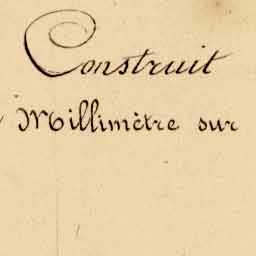 Construit
Millimètre sur